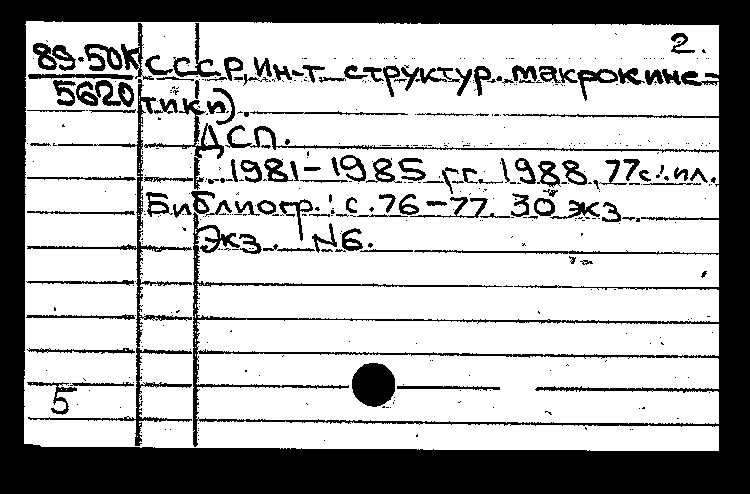 2.
89-50К СССР, Ин-т структур. макрокине-
5620 тики).
ДСП.
1981-1985 гг. 1988. 77с.: ил.
Библиогр.: с. 76-77. 30 экз.
Экз. N6.
5